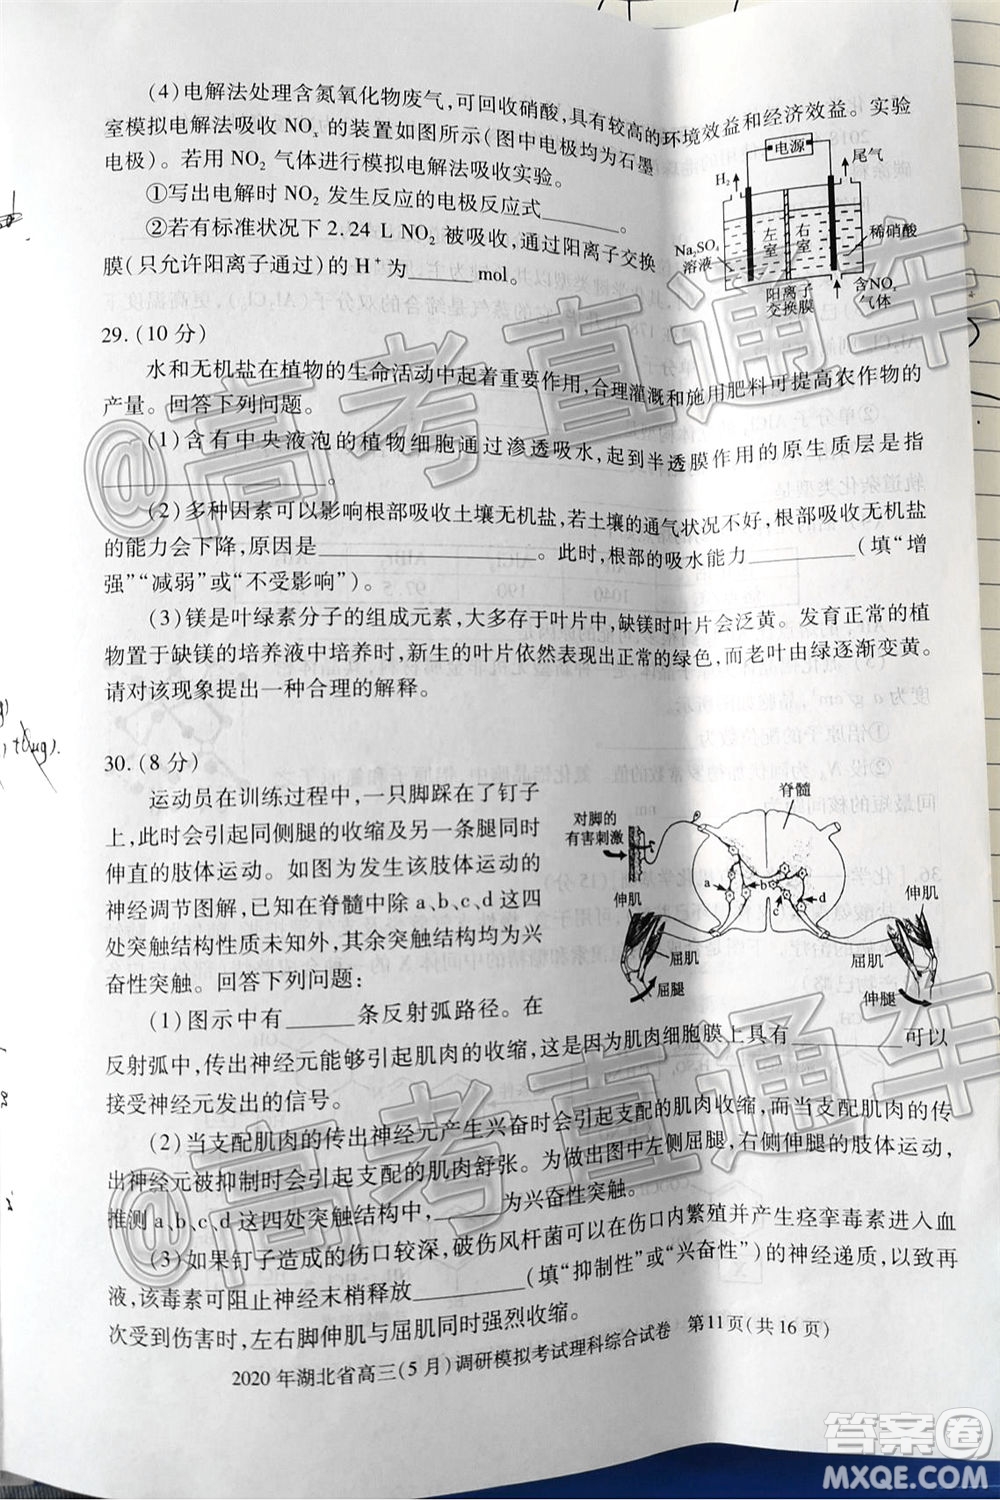 (4)电解法处理含氮氧化物废气,可回收硝酸,具有较高的环境效益和经济效益。实验
室模拟电解法吸收 NOₓ 的装置如图所示(图中电极均为石墨
电极)。若用 NO₂ 气体进行模拟电解法吸收实验。
①写出电解时 NO₂ 发生反应的电极反应式________。
②若有标准状况下 2.24 L NO₂ 被吸收,通过阳离子交换
膜(只允许阳离子通过)的 H⁺ 为______ mol。
电源
H₂
尾气
左室
右室
Na₂SO₄
溶液
稀硝酸
阳离子
交换膜
含NOₓ
气体
29.(10 分)
水和无机盐在植物的生命活动中起着重要作用,合理灌溉和施用肥料可提高农作物的
产量。回答下列问题。
(1)含有中央液泡的植物细胞通过渗透吸水,起到半透膜作用的原生质层是指
____________。
(2)多种因素可以影响根部吸收土壤无机盐,若土壤的通气状况不好,根部吸收无机盐
的能力会下降,原因是____________。此时,根部的吸水能力________(填“增
强”“减弱”或“不受影响”)。
(3)镁是叶绿素分子的组成元素,大多存在于叶片中,缺镁时叶片会泛黄。发育正常的植
物置于缺镁的培养液中培养时,新生的叶片依然表现出正常的绿色,而老叶由绿逐渐变黄。
请对该现象提出一种合理的解释。
30.(8 分)
运动员在训练过程中,一只脚踩在了钉子
上,此时会引起同侧腿的收缩及另一条腿同时
伸直的肢体运动。如图为发生该肢体运动的
神经调节图解,已知在脊髓中除 a、b、c、d 这四
处突触结构性质未知外,其余突触结构均为兴
奋性突触。回答下列问题:
脊髓
对脚的
有害刺激
a
b
c
d
伸肌
屈肌
屈腿
伸肌
屈肌
伸腿
(1)图示中有______条反射弧路径。在
反射弧中,传出神经元能够引起肌肉的收缩,这是因为肌肉细胞膜上具有________可以
接受神经元发出的信号。
(2)当支配肌肉的传出神经元产生兴奋时会引起支配的肌肉收缩,而当支配肌肉的传
出神经元被抑制时会引起支配的肌肉舒张。为了做出图中左侧屈腿,右侧伸腿的肢体运动,
推测 a、b、c、d 这四处突触结构中,______为兴奋性突触。
(3)如果钉子造成的伤口较深,破伤风杆菌可以在伤口内繁殖并产生痉挛毒素进入血
液,该毒素可阻止神经末梢释放________(填“抑制性”或“兴奋性”)的神经递质,以致再一
次受到伤害时,左右脚伸肌与屈肌同时强烈收缩。
2020 年湖北省高三(5 月)调研模拟考试理科综合试卷 第11页(共 16 页)
@高考直通车
@高考直通车
答案圈
MXQE.COM